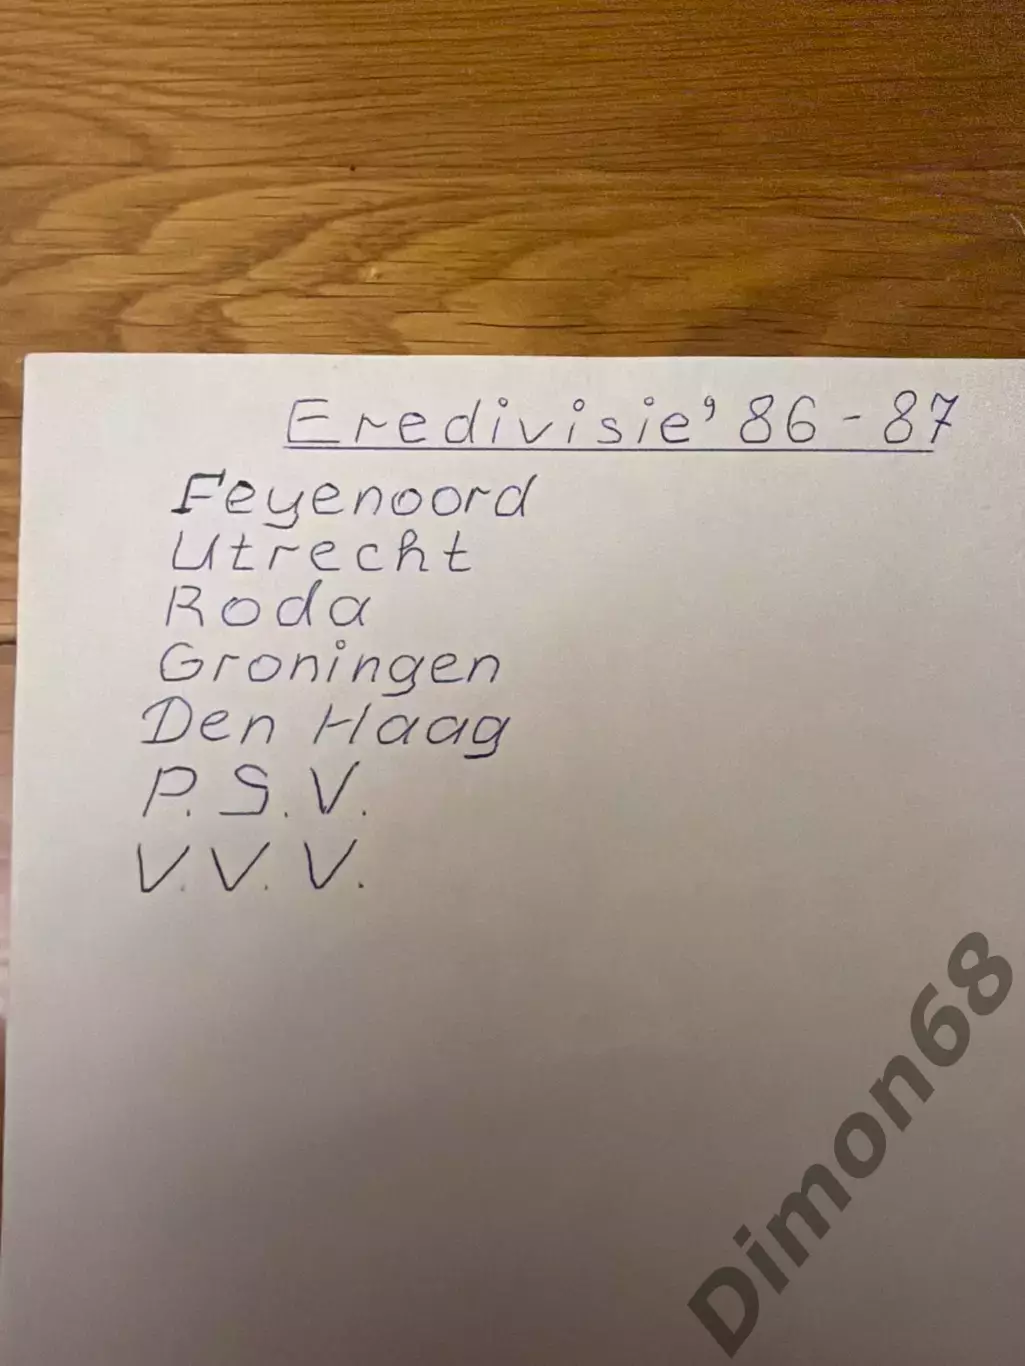 Eredivisie '86-87
Feyenoord
Utrecht
Roda
Groningen
Den Haag
P.S.V.
V.V.V.
Dimon68